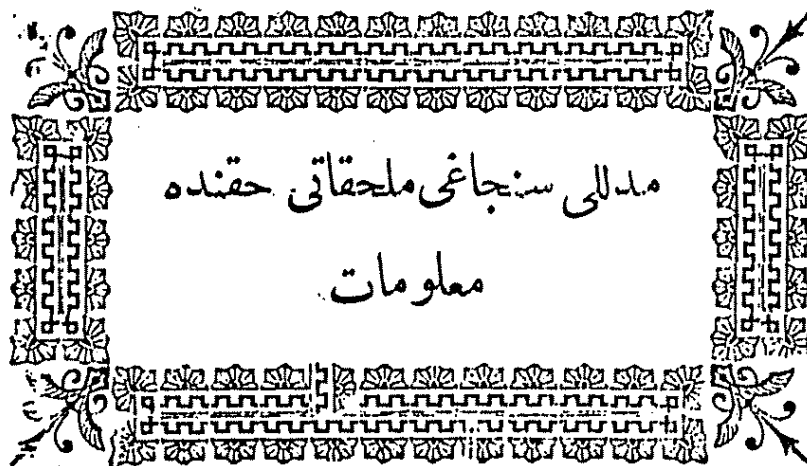 مدللی سنجاغی ملحقاتی حقنده
معلومات